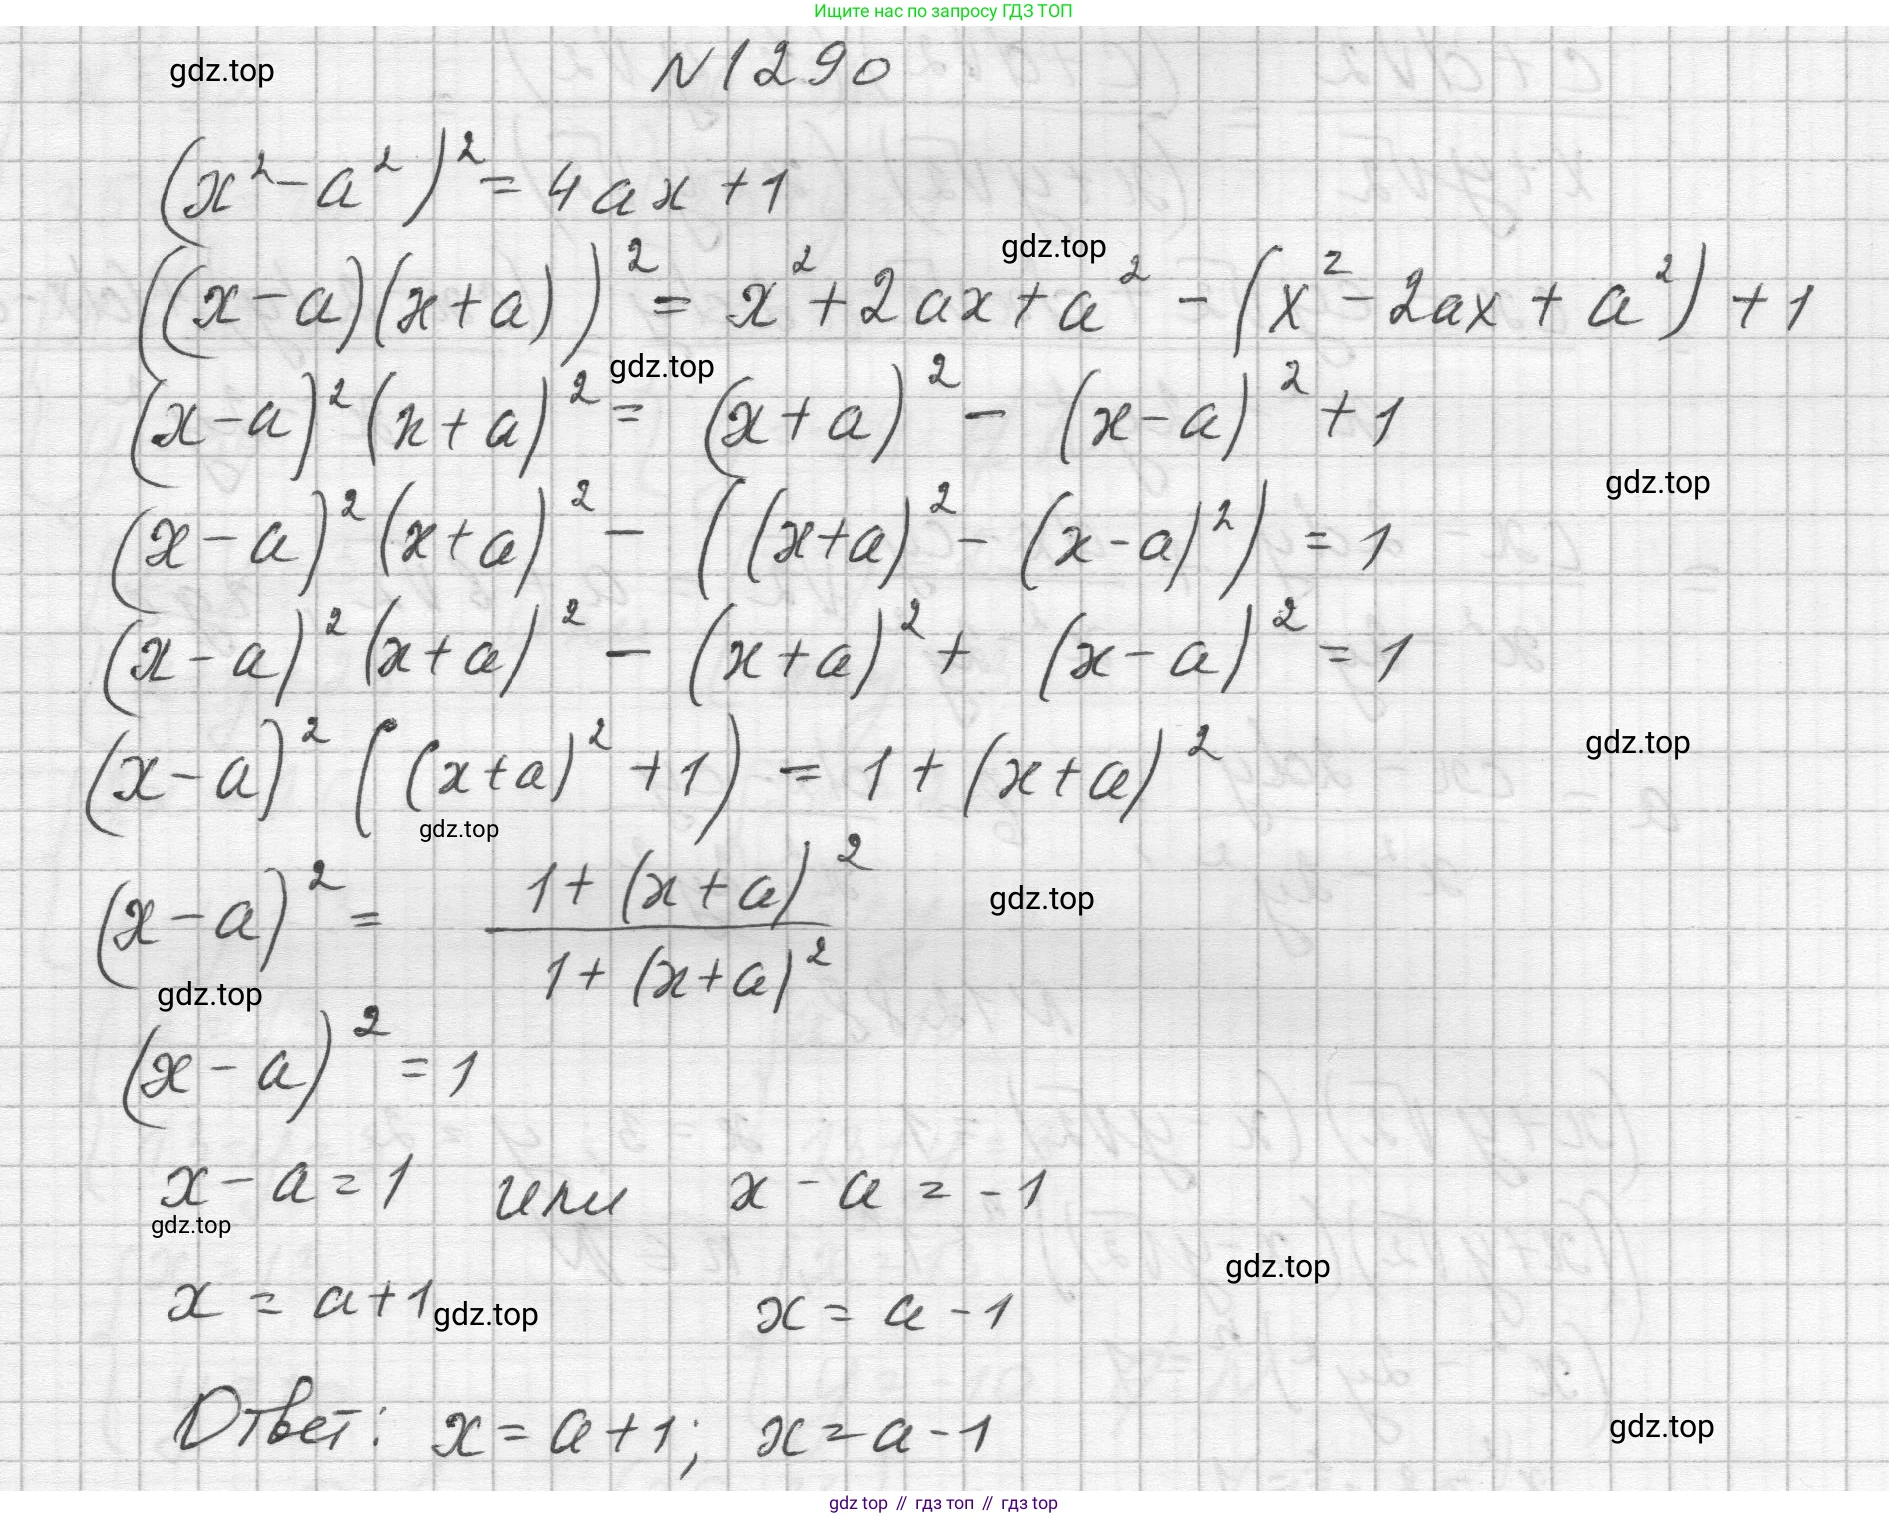 Ищите нас по запросу ГДЗ ТОП
gdz.top
N1290
(x² - a²)² = 4ax + 1
gdz.top
((x - a)(x + a))² = x² + 2ax + a² - (x² - 2ax + a²) + 1
gdz.top
(x - a)² (x + a)² = (x + a)² - (x - a)² + 1
gdz.top
(x - a)² (x + a)² - ((x + a)² - (x - a)²) = 1
(x - a)² (x + a)² - (x + a)² + (x - a)² = 1
gdz.top
(x - a)² ((x + a)² + 1) = 1 + (x + a)²
gdz.top
(x - a)² = \frac{1 + (x + a)²}{1 + (x + a)²}
gdz.top
gdz.top
(x - a)² = 1
x - a = 1 или x - a = -1
gdz.top
gdz.top
x = a + 1 x = a - 1
gdz.top
Ответ: x = a + 1; x = a - 1
gdz.top
gdz top // гдз топ // гдз top